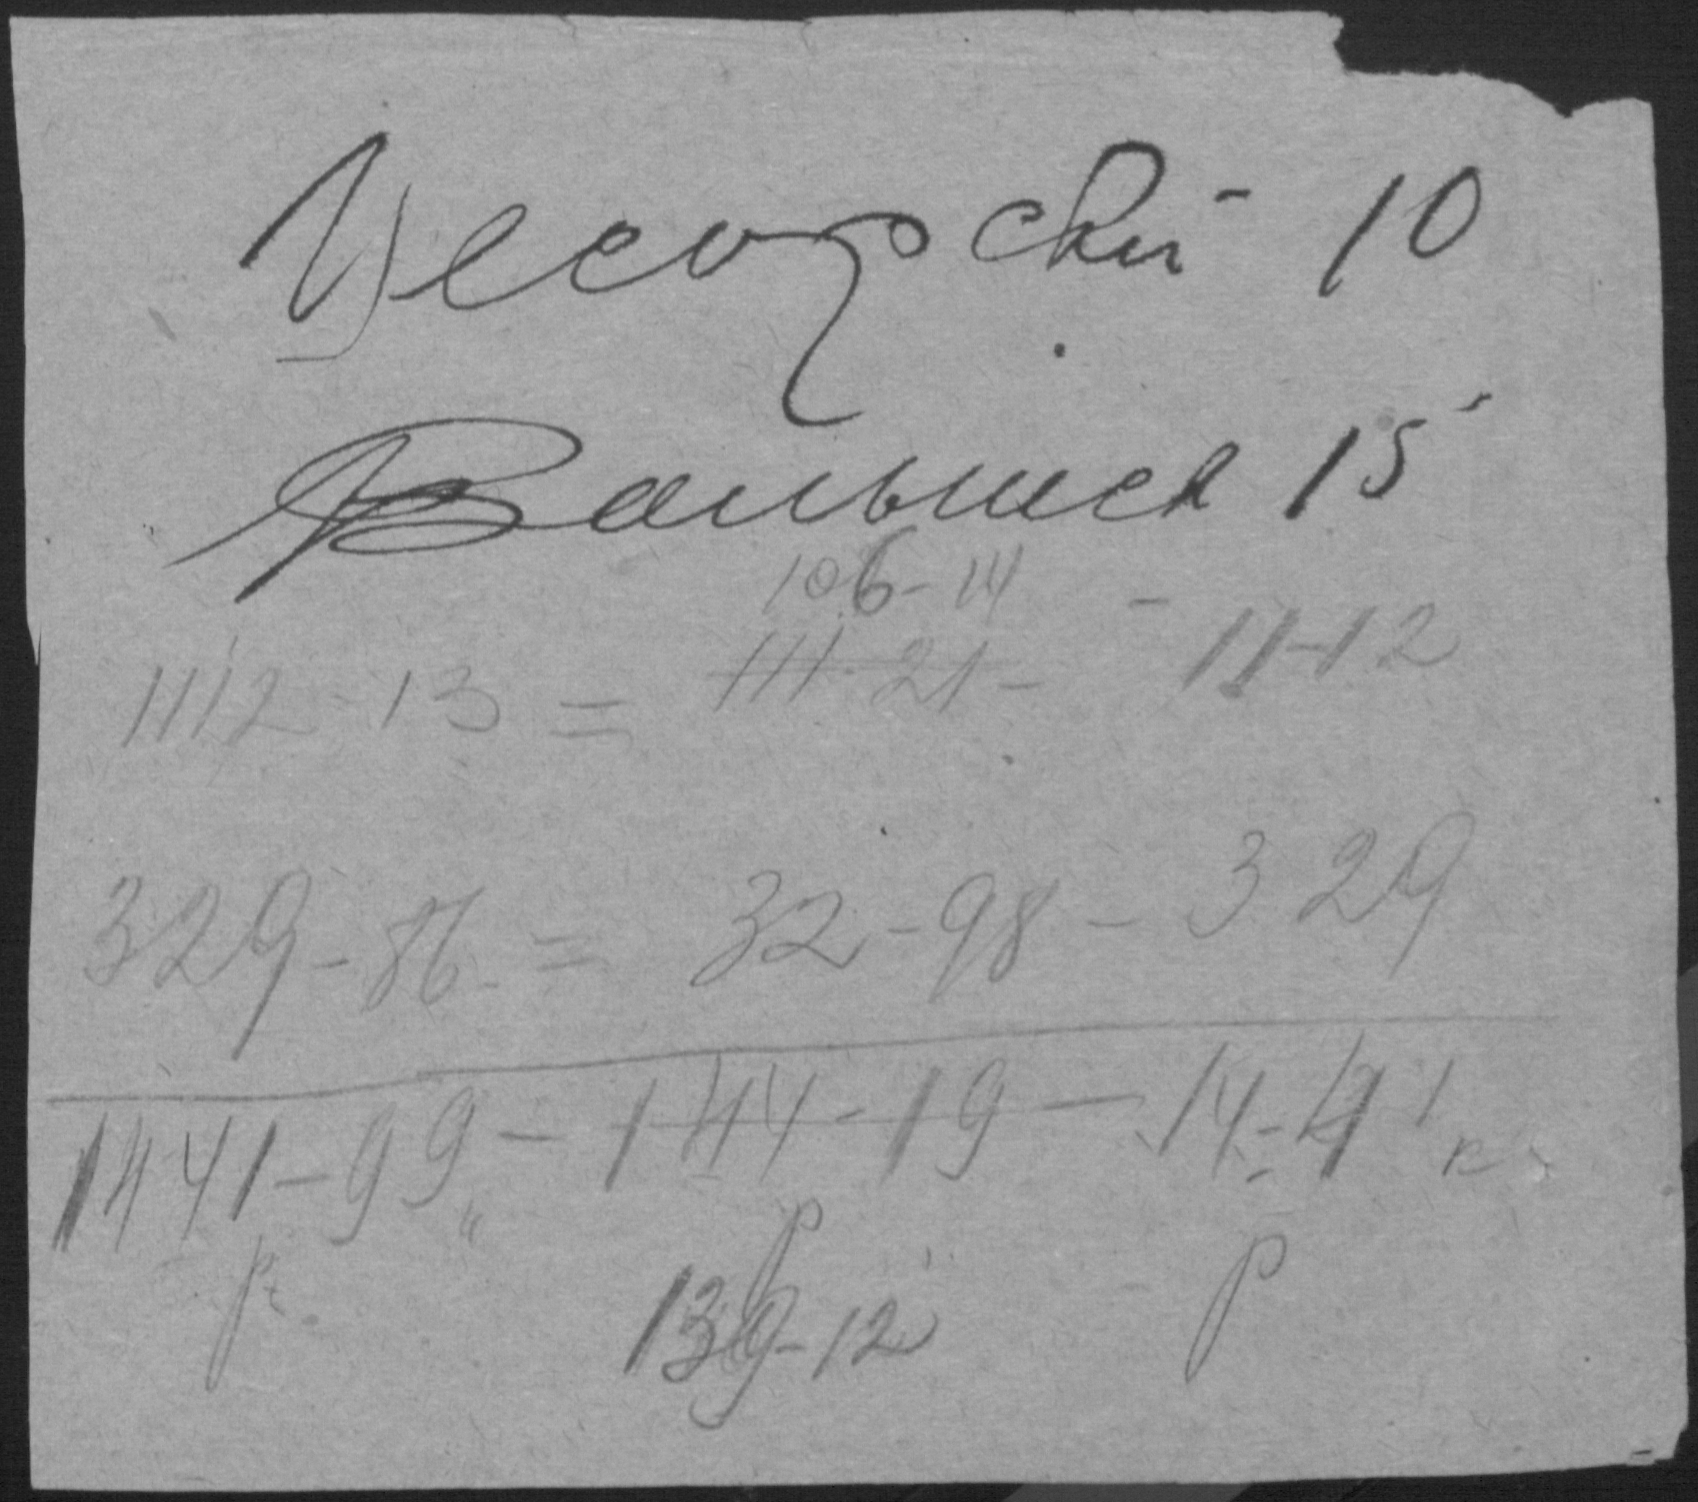 Цесорский - 10
Валышев 15
106-14
1112-13 = 111-21 - - 11-12
329-86 = 32-98 - 3 29
1441-99 - 144-19 - 14-41 к.
р. р р
139-12